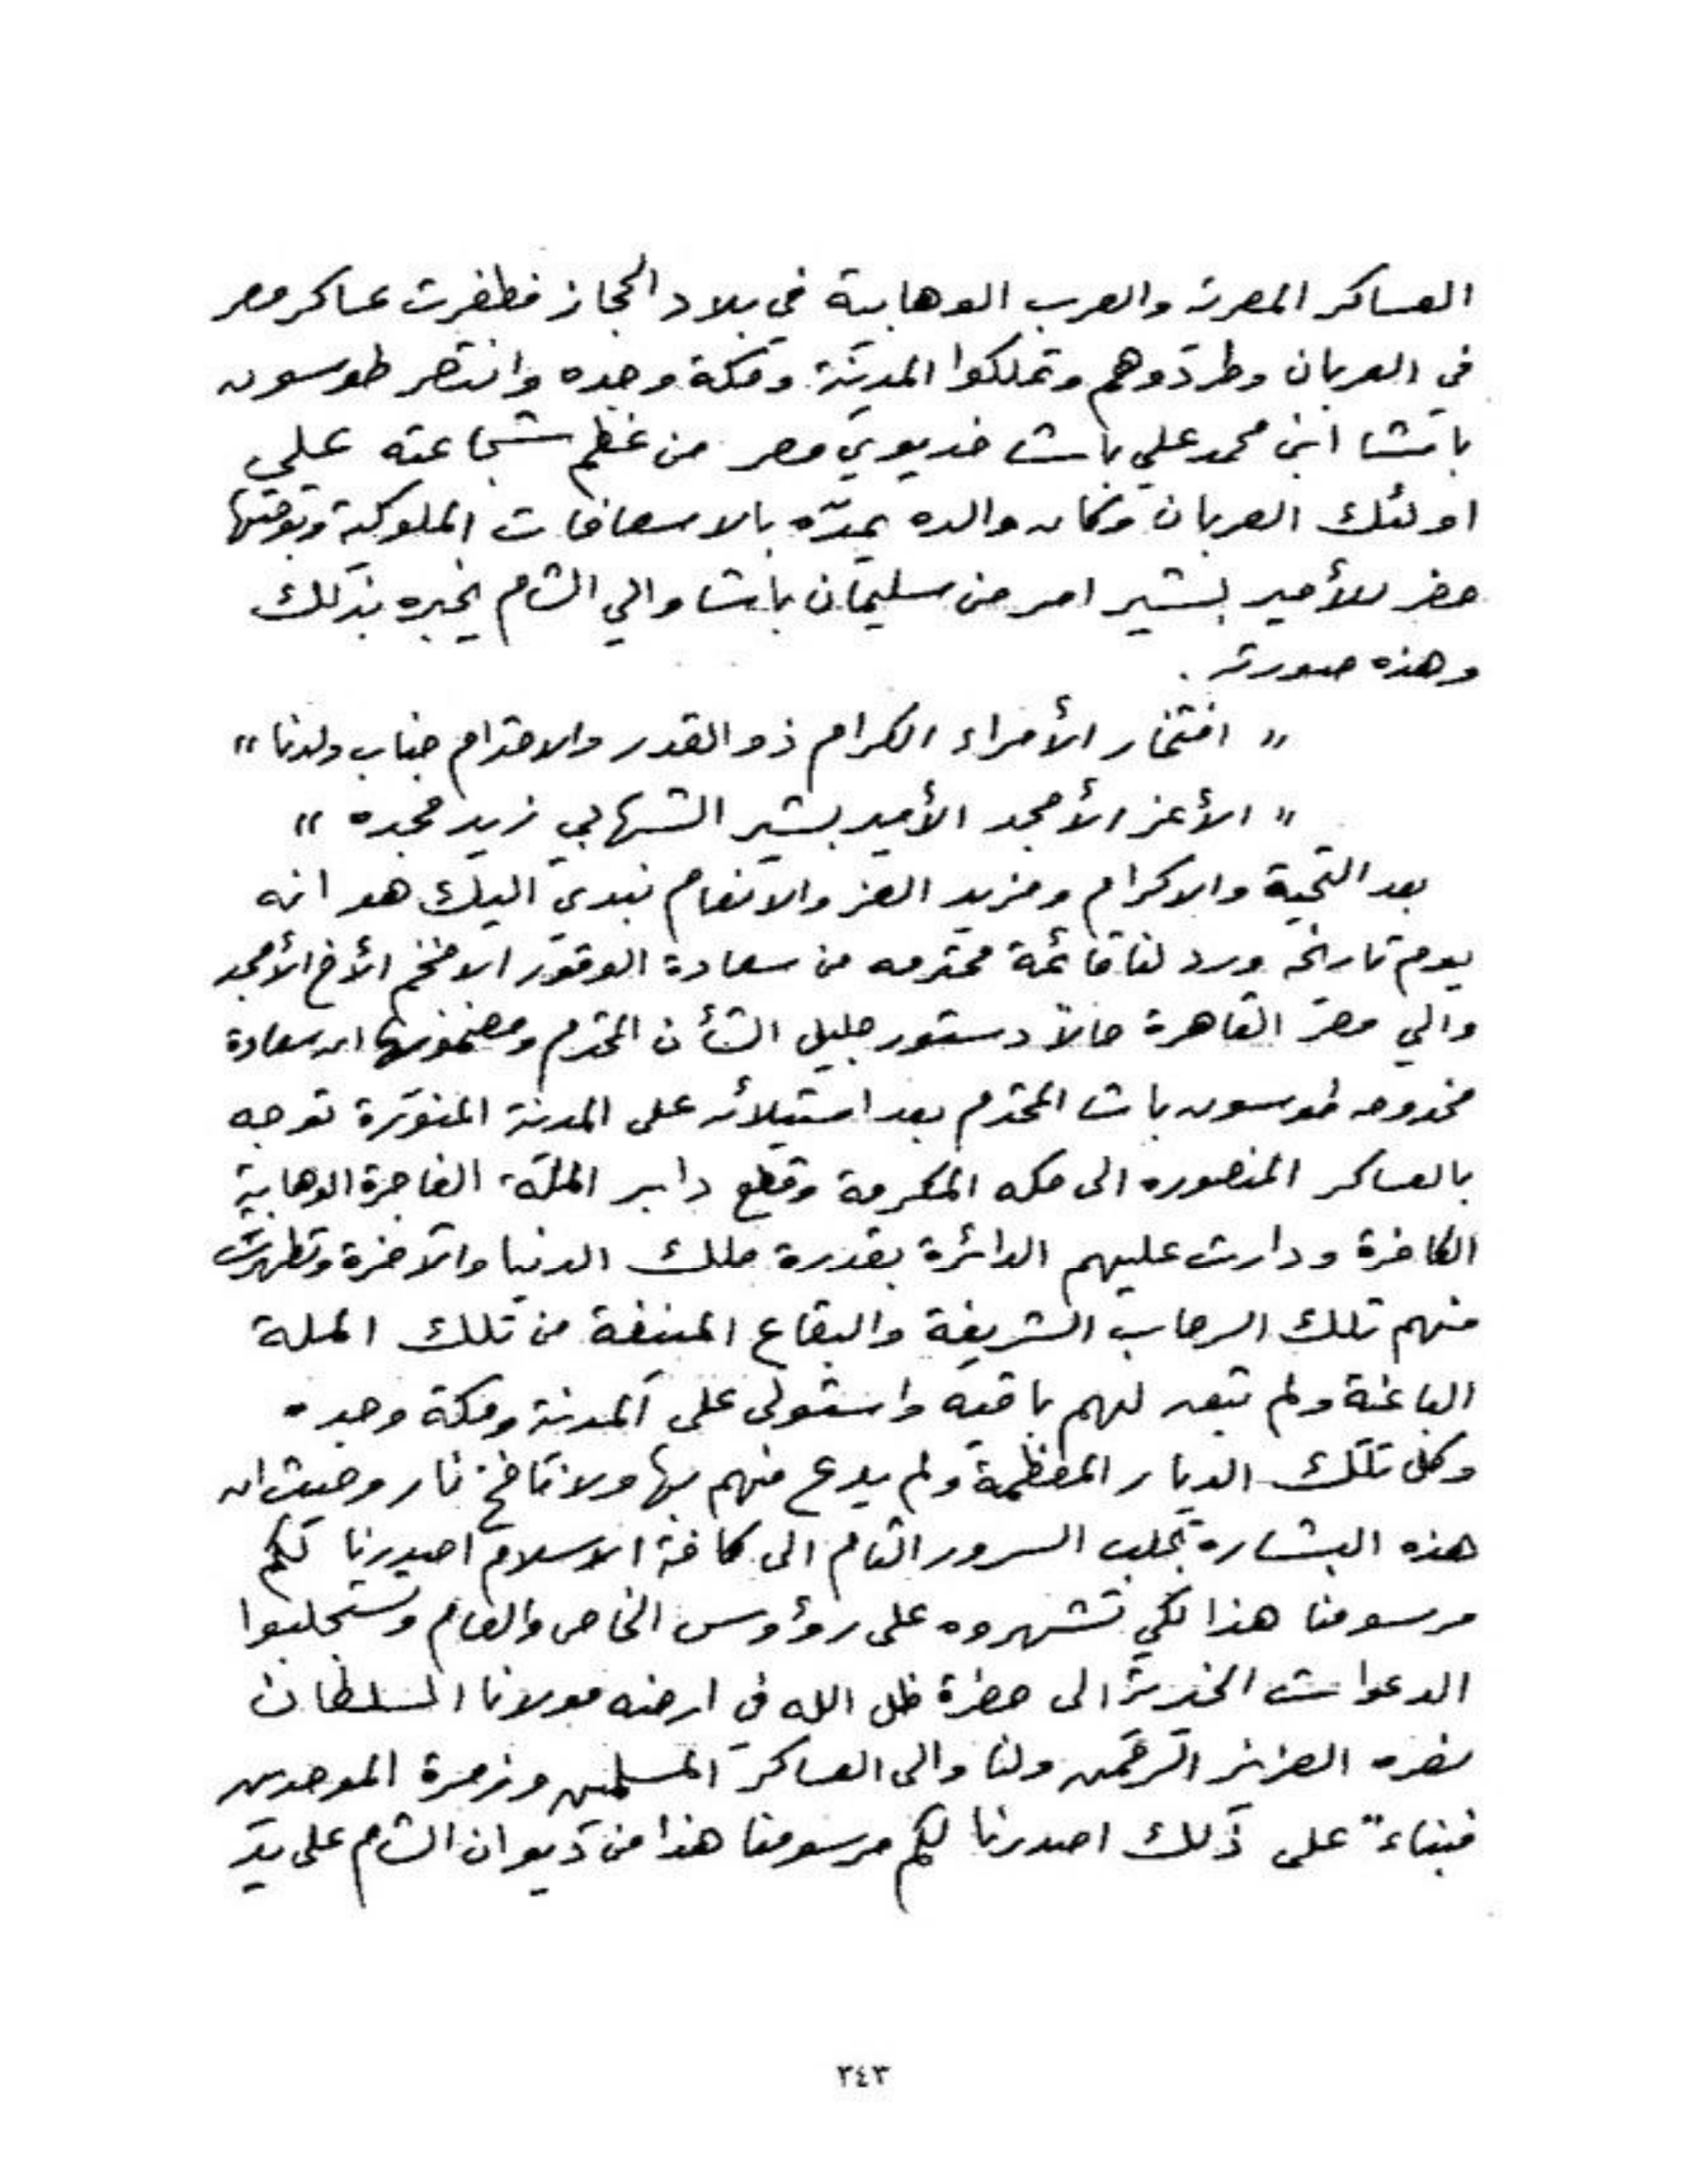 العساكر المصرية والعرب الوهابية في بلاد الحجاز فظفرت عساكر مصر
في العربان وطردوهم وتملكوا المدينة ومكة وجده وانتصر طوسون
باشا ابن محمد علي باشا خديوي مصر من عظم شجاعته على
اولئك العربان وكان والده يمدّه بالاسعافات الملوكية وبوقتها
حضر للأمير بشير امر من سليمان باشا والي الشام يخبره بذلك
وهذه صورته .
" افتخار الأمراء الكرام ذو القدر والاحترام جناب ولدنا "
" الأعز الأمجد الأمير بشير الشهابي زيد مجده "
بعد التحية والاكرام ومزيد العز والانعام نبدي اليك هو انه
يوم تاريخه ورد لنا قائمة محترمه من سعادة الوقور الافخم الأخ الأمجد
والي مصر القاهرة حالاً دستور جليل الشأن المحترم ومضمونها ان سعادة
مخدومه طوسون باشا المحترم بعد استيلائه على المدينة المنوّرة توجه
بالعساكر المنصوره الى مكه المكرمة وقطع دابر الملّة الفاجرة الوهابية
الكافرة ودارت عليهم الدائرة بقدرة ملك الدنيا والآخرة وتطهرت
منهم تلك الرحاب الشريفة والبقاع المنيفة من تلك الملة
الباغية ولم تبق لهم باقيه واستولى على المدينة ومكة وجده
وكل تلك الديار المعظمة ولم يدع منهم بها ولا نافخ نار وحيث ان
هذه البشاره تجلب السرور التام الى كافة الاسلام اصدرنا لكم
مرسومنا هذا لكي تشهروه على رؤوس الخاص والعام وتستجلبوا
الدعوات الخيرية الى حضرة ظل الله في ارضه مولانا السلطان
نصره العزيز الرحمن ولنا والى العساكر المسلمين وزمرة الموحدين
فبناءً على ذلك اصدرنا لكم مرسومنا هذا من ديوان الشام على يد
٣٤٣